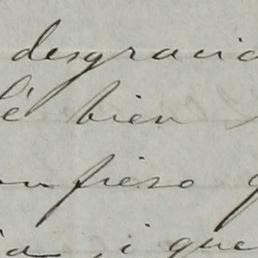 desgracia
é bien
confieso q
ia, i que